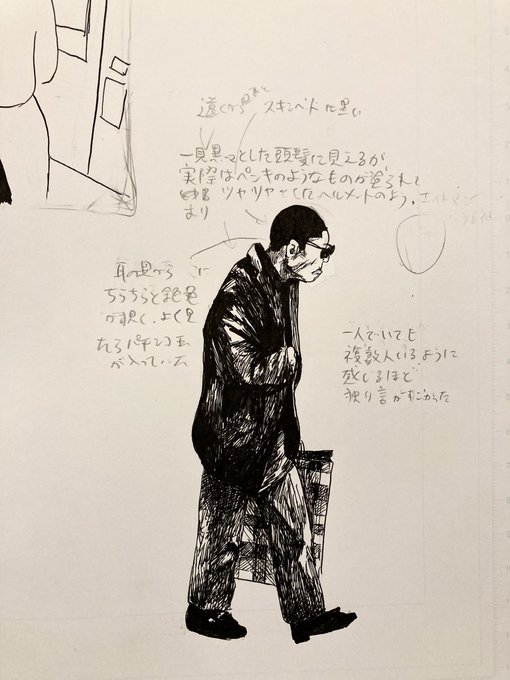 遠くから見ると スキンヘッドに黒い
一見黒々とした頭髪に見えるが
実際はペンキのようなものが塗られて
おり ツヤツヤとしたヘルメットのよう。エイトマン
耳の奥から
ちらちらと銀色
が よく見
たらパチンコ玉
が入っていた
一人でいても
複数人いるように
感じるほど
独り言がすごかった